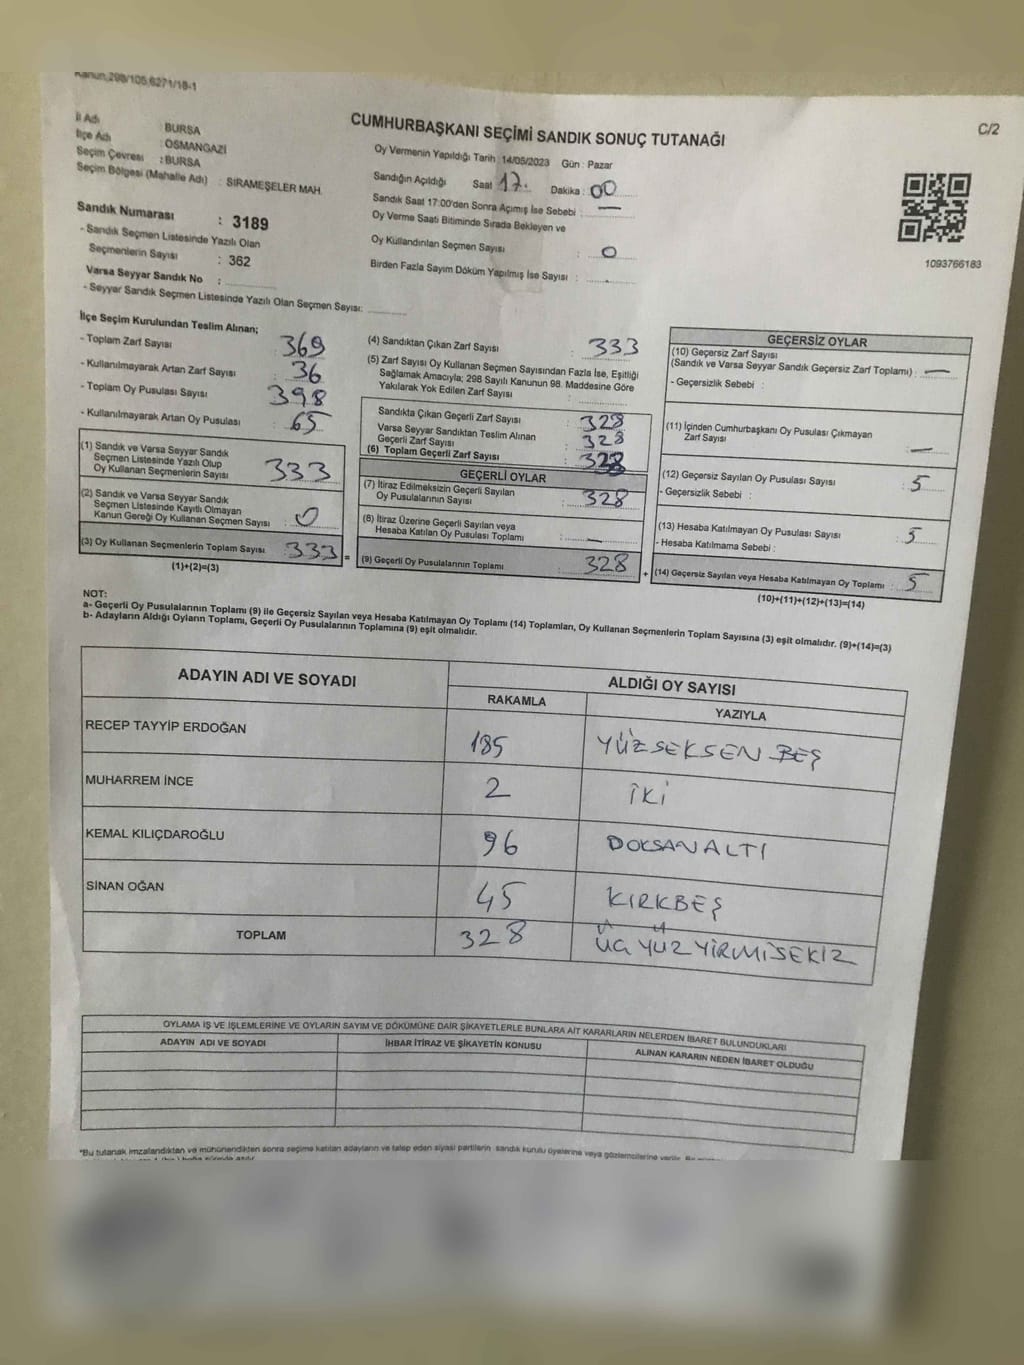 Kanun,298/105,6271/18-1
C/2
CUMHURBAŞKANI SEÇİMİ SANDIK SONUÇ TUTANAĞI
İl Adı : BURSA
İlçe Adı : OSMANGAZİ
Seçim Çevresi : BURSA
Seçim Bölgesi (Mahalle Adı) : SIRAMEŞELER MAH.
Sandık Numarası : 3189
- Sandık Seçmen Listesinde Yazılı Olan
Seçmenlerin Sayısı : 362
Varsa Seyyar Sandık No :
- Seyyar Sandık Seçmen Listesinde Yazılı Olan Seçmen Sayısı:
Oy Vermenin Yapıldığı Tarih : 14/05/2023 Gün : Pazar
Sandığın Açıldığı Saat 17. Dakika : 00
Sandık Saat 17:00'den Sonra Açımış İse Sebebi : —
Oy Verme Saati Bitiminde Sırada Bekleyen ve
Oy Kullandırılan Seçmen Sayısı : 0
Birden Fazla Sayım Döküm Yapılmış İse Sayısı :
1093766183
İlçe Seçim Kurulundan Teslim Alınan;
- Toplam Zarf Sayısı : 369
- Kullanılmayarak Artan Zarf Sayısı : 36
- Toplam Oy Pusulası Sayısı : 398
- Kullanılmayarak Artan Oy Pusulası : 65
(1) Sandık ve Varsa Seyyar Sandık
Seçmen Listesinde Yazılı Olup
Oy Kullanan Seçmenlerin Sayısı : 333
(2) Sandık ve Varsa Seyyar Sandık
Seçmen Listesinde Kayıtlı Olmayan
Kanun Gereği Oy Kullanan Seçmen Sayısı : 0
(3) Oy Kullanan Seçmenlerin Toplam Sayısı : 333 =
(1)+(2)=(3)
(4) Sandıktan Çıkan Zarf Sayısı : 333
(5) Zarf Sayısı Oy Kullanan Seçmen Sayısından Fazla İse, Eşitliği
Sağlamak Amacıyla; 298 Sayılı Kanunun 98. Maddesine Göre
Yakılarak Yok Edilen Zarf Sayısı :
Sandıkta Çıkan Geçerli Zarf Sayısı : 328
Varsa Seyyar Sandıktan Teslim Alınan
Geçerli Zarf Sayısı : 328
(6) Toplam Geçerli Zarf Sayısı : 328
GEÇERLİ OYLAR
(7) İtiraz Edilmeksizin Geçerli Sayılan
Oy Pusulalarının Sayısı : 328
(8) İtiraz Üzerine Geçerli Sayılan veya
Hesaba Katılan Oy Pusulası Toplamı : —
(9) Geçerli Oy Pusulalarının Toplamı : 328 +
GEÇERSİZ OYLAR
(10) Geçersiz Zarf Sayısı
(Sandık ve Varsa Seyyar Sandık Geçersiz Zarf Toplamı) : —
- Geçersizlik Sebebi :
(11) İçinden Cumhurbaşkanı Oy Pusulası Çıkmayan
Zarf Sayısı : —
(12) Geçersiz Sayılan Oy Pusulası Sayısı : 5
- Geçersizlik Sebebi :
(13) Hesaba Katılmayan Oy Pusulası Sayısı : 5
- Hesaba Katılmama Sebebi :
(14) Geçersiz Sayılan veya Hesaba Katılmayan Oy Toplamı : 5
(10)+(11)+(12)+(13)=(14)
NOT:
a- Geçerli Oy Pusulalarının Toplamı (9) ile Geçersiz Sayılan veya Hesaba Katılmayan Oy Toplamı (14) Toplamları, Oy Kullanan Seçmenlerin Toplam Sayısına (3) eşit olmalıdır. (9)+(14)=(3)
b- Adayların Aldığı Oyların Toplamı, Geçerli Oy Pusulalarının Toplamına (9) eşit olmalıdır.
ADAYIN ADI VE SOYADI ALDIĞI OY SAYISI
RAKAMLA YAZIYLA
RECEP TAYYİP ERDOĞAN 185 YÜZSEKSEN BEŞ
MUHARREM İNCE 2 İKİ
KEMAL KILIÇDAROĞLU 96 DOKSANALTI
SİNAN OĞAN 45 KIRKBEŞ
TOPLAM 328 ÜÇ YÜZ YİRMİSEKİZ
OYLAMA İŞ VE İŞLEMLERİNE VE OYLARIN SAYIM VE DÖKÜMÜNE DAİR ŞİKAYETLERLE BUNLARA AİT KARARLARIN NELERDEN İBARET BULUNDUKLARI
ADAYIN ADI VE SOYADI İHBAR İTİRAZ VE ŞİKAYETİN KONUSU ALINAN KARARIN NEDEN İBARET OLDUĞU
*Bu tutanak imzalandıktan ve mühürlendikten sonra seçime katılan adayların ve talep eden siyasi partilerin sandık kurulu üyelerine veya gözlemcilerine verilir.